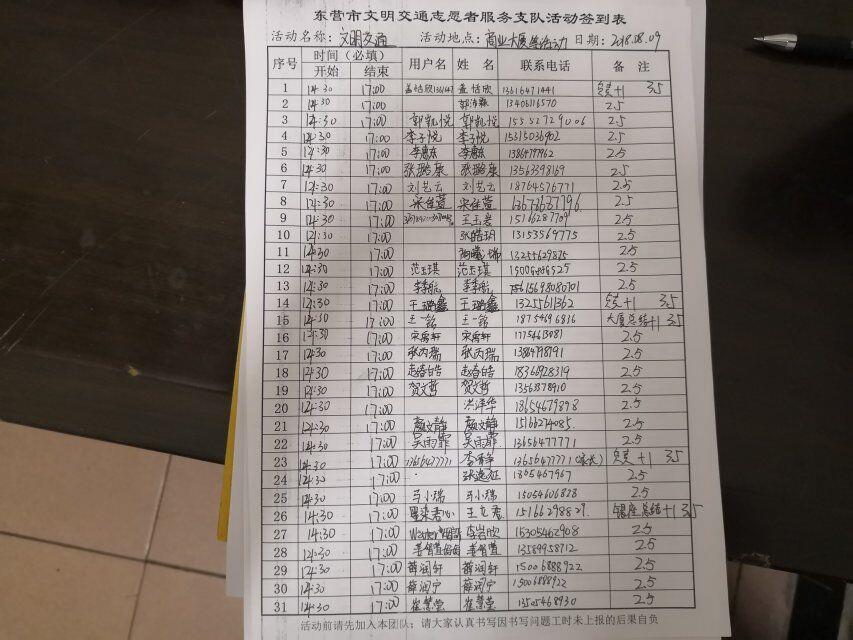 东营市文明交通志愿者服务支队活动签到表
活动名称：文明交通 活动地点：商业大厦 日期：2018.08.09
序号 时间（必填） 用户名 姓 名 联系电话 备 注
开始 结束
1 14:30 17:00 孟恬欣 13616471441 负责+1 3.5
2 14:30 17:00 13406116570 2.5
3 14:30 17:00 郭凯悦 郭凯悦 15552729006 2.5
4 14:30 17:00 李子悦 李子悦 15315036902 2.5
5 14:30 17:00 2.5
6 14:30 17:00 张璐康 张璐康 13563398169 2.5
7 14:30 17:00 刘艺云 刘艺云 18764576771 2.5
8 14:30 17:00 宋佳萱 宋佳萱 13675637796 2.5
9 14:30 17:00 15166287709 2.5
10 14:30 17:00 张皓玥 13153569775 2.5
11 14:30 17:00 13255629875 2.5
12 14:30 17:00 范玉琪 范玉琪 2.5
13 14:30 17:00 2.5
14 14:30 17:00 王璐鑫 王璐鑫 13255611362 负责+1 3.5
15 14:30 17:00 王一铭 王一铭 18754696816 大厦总结+1 3.5
16 14:30 17:00 宋禹轩 宋禹轩 17754613081 2.5
17 14:30 17:00 张丙瑞 张丙瑞 13884798191 2.5
18 14:30 17:00 18368928319 2.5
19 14:30 17:00 贺文哲 贺文哲 13561878910 2.5
20 14:30 17:00 洪泽华 18654679898 2.5
21 14:30 17:00 颜文静 颜文静 15166274085 2.5
22 14:30 17:00 吴雨霏 吴雨霏 13656477771 2.5
23 14:30 17:00 13656477771 13656477771（家长） 负责+1 3.5
24 14:30 17:00 张逸征 1865467967 2.5
25 14:30 17:00 马小瑞 马小瑞 15054606828 2.5
26 14:30 17:00 银座总结+1 3.5
27 14:30 17:00 李岩欣 15305462908 2.5
28 14:30 17:00 13589958712 2.5
29 14:30 17:00 薛润轩 薛润轩 15006888922 2.5
30 14:30 17:00 薛润宁 薛润宁 15006888922 2.5
31 14:30 17:00 崔慧莹 崔慧莹 13505468930 2.5
活动前请先加入本团队；请大家认真书写因书写问题工时未上报的后果自负